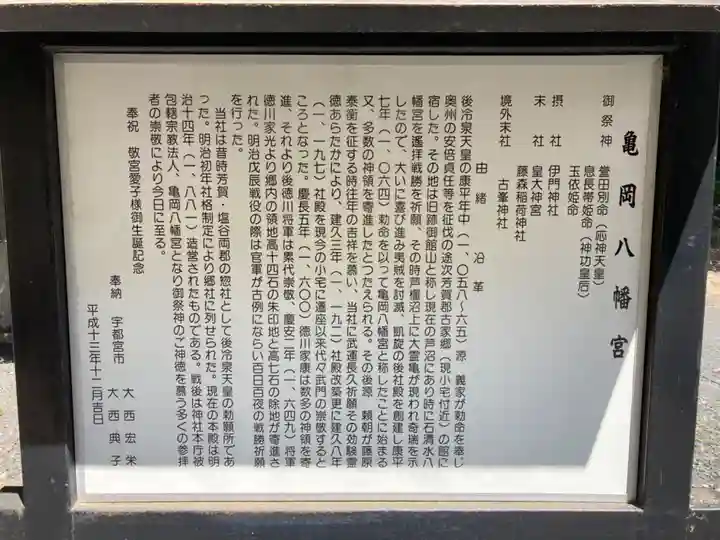 亀岡八幡宮
御祭神 誉田別命（応神天皇）
息長帯姫命（神功皇后）
玉依姫命
摂社 伊門神社
末社 皇大神宮
藤森稲荷神社
境外末社 古峯神社
由緒沿革
後冷泉天皇の康平年中（一、〇五八～六五）源 義家が勅命を奉じ
奥州の安倍貞任等を征伐の途次芳賀郡古家郷（現小宅付近）の館に
宿した。その地は旧跡御館山と称し現在の芦沼にあり時に石清水八
幡宮を遙拝戦勝を祈願、その時芦権沼上に大霊亀が現われ奇瑞を示
したので、大いに喜び進み夷賊を討滅、凱旋の後社殿を創建し康平
七年（一、〇六四）勅命を以って亀岡八幡宮と称したことに始まる
又、多数の神領を寄進したとつたえられる。その後源 頼朝が藤原
泰衡を征する時往年の吉祥を慕い、当社に武運長久祈願その効験霊
徳あらたかにより、建久三年（一、一九二）社殿改築更に建久八年
（一、一九七）社殿を現今の小宅に遷座以来代々武門の崇敬すると
ころとなった。慶長五年（一、六〇〇）徳川家康は数多の神領を寄
進、それより後徳川将軍は累代崇敬、慶安二年（一、六四九）将軍
徳川家光より郷内の領地高十四石の朱印地と高七石の除地が寄進さ
れた。明治戊辰戦役の際は官軍が古例にならい百日百夜の戦勝祈願
を行った。
当社は昔時芳賀・塩谷両郡の惣社として後冷泉天皇の勅願所であ
った。明治初年社格制定により郷社に列せられた。現在の本殿は明
治十四年（一、八八一）造営されたものである。戦後は神社本庁被
包轄宗教法人、亀岡八幡宮となり御祭神のご神徳を慕う多くの参拝
者の崇敬により今日に至る。
奉祝 敬宮愛子様御生誕記念
奉納 宇都宮市 大西宏栄
大西典子
平成十三年十二月吉日